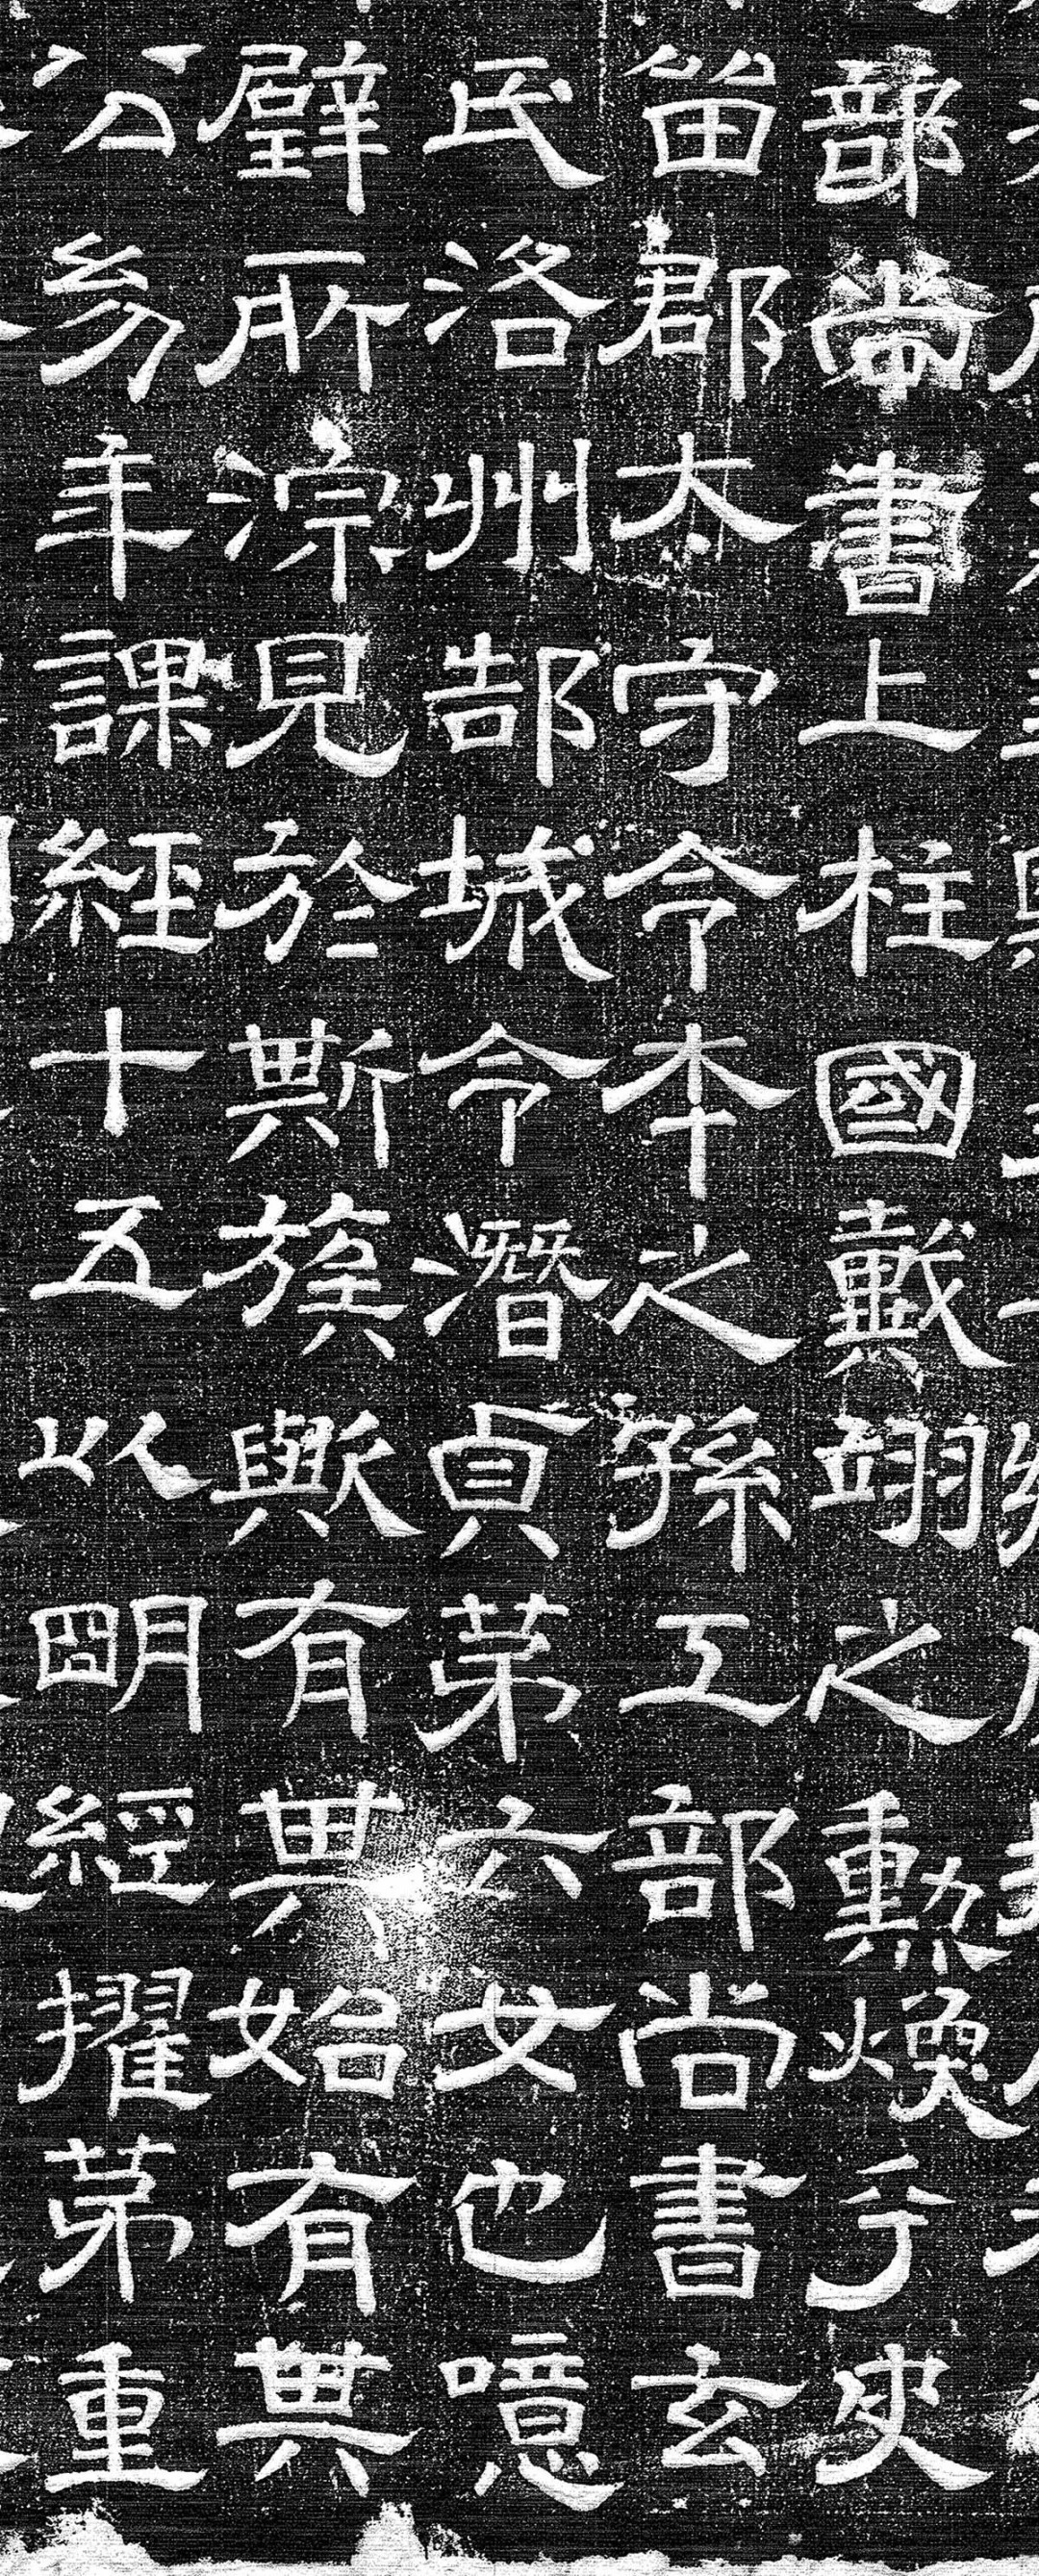 部尚書上柱國戴翊之勲煥乎史
甾郡太守令本之孫工部尚書玄
民洛州郜城令潛貞第六女也噫
璧所淙見於斯旗歟有其始有其
公幼年課經十五以明經擢第重